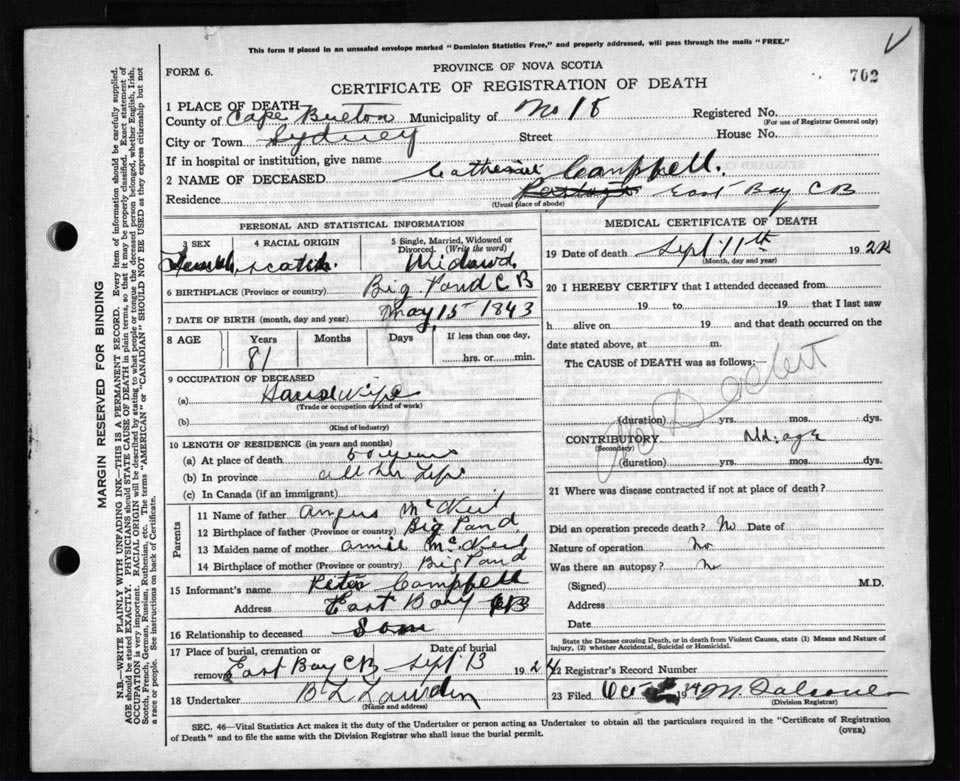 This form if placed in an unsealed envelope marked "Dominion Statistics Free," and properly addressed, will pass through the mails "FREE."
FORM 6.
PROVINCE OF NOVA SCOTIA
702
CERTIFICATE OF REGISTRATION OF DEATH
1 PLACE OF DEATH—
County of Cape Breton Municipality of No 18 Registered No.
(For use of Registrar General only)
City or Town Sydney Street House No.
If in hospital or institution, give name
2 NAME OF DECEASED Catherine Campbell.
Residence East Bay C B
(Usual place of abode)
PERSONAL AND STATISTICAL INFORMATION
3 SEX 4 RACIAL ORIGIN 5 Single, Married, Widowed or Divorced. (Write the word)
Female scotch. Widowd
6 BIRTHPLACE (Province or country) Big Pond C B
7 DATE OF BIRTH (month, day and year) May 15 1843
8 AGE Years Months Days If less than one day,
81 hrs. or min.
9 OCCUPATION OF DECEASED
(a) Housewife
(Trade or occupation or kind of work)
(b)
(Kind of industry)
10 LENGTH OF RESIDENCE (in years and months)
(a) At place of death 60 years
(b) In province all her Life
(c) In Canada (if an immigrant)
Parents
11 Name of father Angus McNeil
12 Birthplace of father (Province or country) Big Pond
13 Maiden name of mother Annie McNeil
14 Birthplace of mother (Province or country) Big Pond
15 Informant's name Peter Campbell
Address East Bay CB
16 Relationship to deceased Son
17 Place of burial, cremation or removal Date of burial
East Bay C B Sept 13 1924
18 Undertaker
(Name and address)
MEDICAL CERTIFICATE OF DEATH
19 Date of death Sept 11th 1924
(Month, day and year)
20 I HEREBY CERTIFY that I attended deceased from
19 to 19 that I last saw
h alive on 19 and that death occurred on the
date stated above, at m.
The CAUSE of DEATH was as follows:—
No Doctor
(duration) yrs. mos. dys.
CONTRIBUTORY Old age
(Secondary)
(duration) yrs. mos. dys.
21 Where was disease contracted if not at place of death?
Did an operation precede death? No Date of
Nature of operation No
Was there an autopsy? No
(Signed) M.D.
Address
Date
State the Disease causing Death, or in death from Violent Causes, state (1) Means and Nature of Injury, (2) whether Accidental, Suicidal or Homicidal.
22 Registrar's Record Number
23 Filed Oct 1924
(Division Registrar)
SEC. 46—Vital Statistics Act makes it the duty of the Undertaker or person acting as Undertaker to obtain all the particulars required in the "Certificate of Registration
of Death" and to file the same with the Division Registrar who shall issue the burial permit.
(OVER)
MARGIN RESERVED FOR BINDING
N.B.—WRITE PLAINLY WITH UNFADING INK—THIS IS A PERMANENT RECORD. Every item of information should be carefully supplied.
AGE should be stated EXACTLY. PHYSICIANS should STATE CAUSE OF DEATH in plain terms, so that it may be properly classified. Exact statement of
OCCUPATION is very important. RACIAL ORIGIN will be described by stating to what people or tongue the deceased person belonged, whether English, Irish,
Scotch, French, German, Russian, Ruthenian, etc. The terms "AMERICAN" or "CANADIAN" SHOULD NOT BE USED as they express citizenship but not
a race or people. See instructions on back of Certificate.